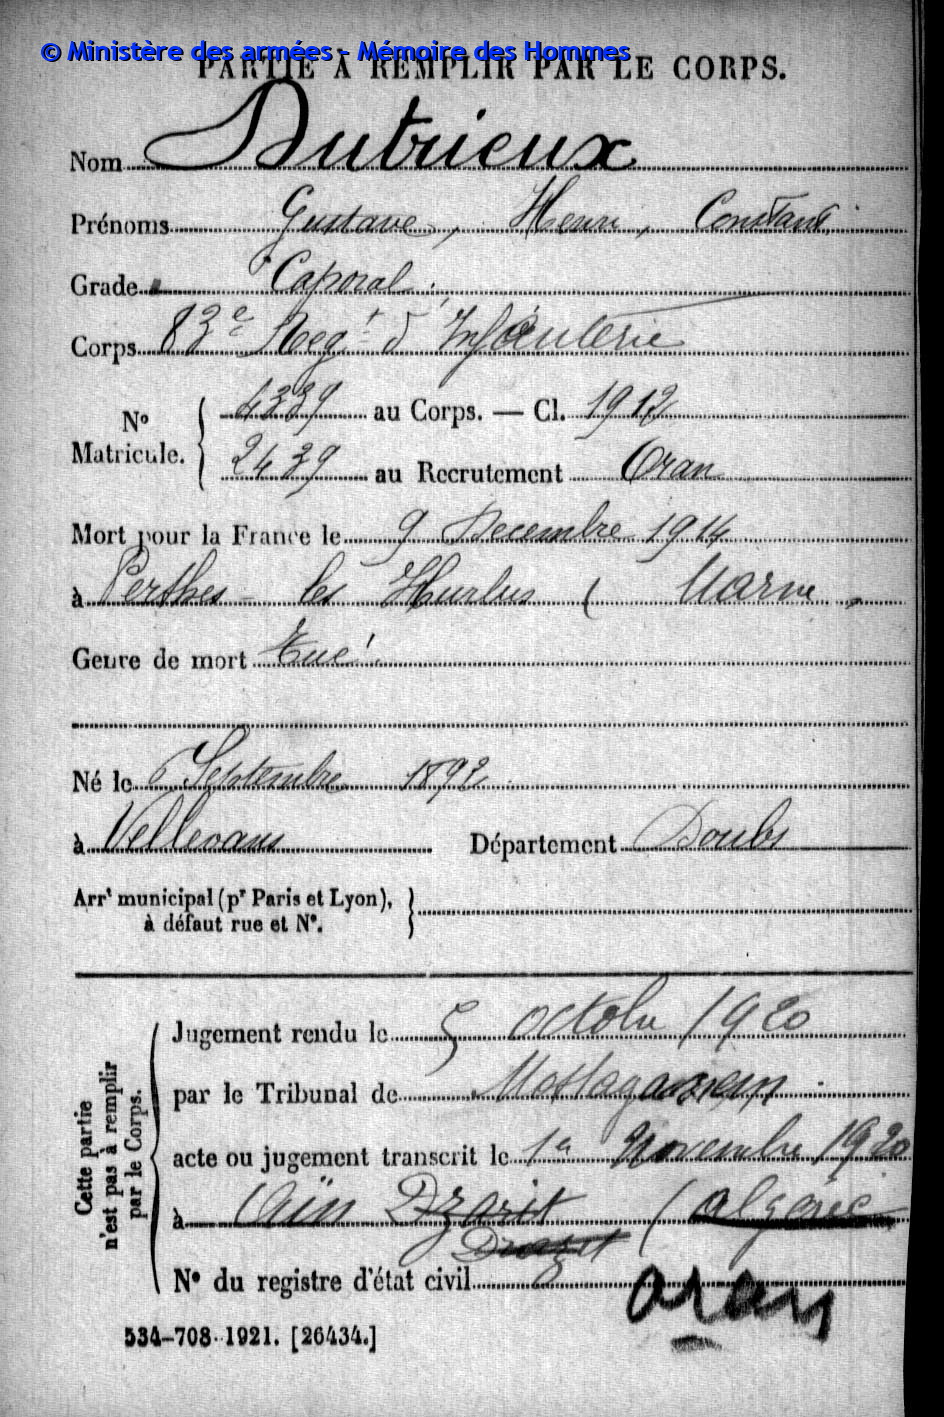 © Ministère des armées - Mémoire des Hommes
PARTIE À REMPLIR PAR LE CORPS.
Nom Dutrieux
Prénoms Gustave, Henri, Constant
Grade Caporal
Corps 83e Regt d'Infanterie
No Matricule. 4339 au Corps. — Cl. 1912
2439 au Recrutement Oran
Mort pour la France le 9 Decembre 1914
à Perthes-les Hurlus (Marne)
Genre de mort Tué
Né le 6 Septembre 1892
à Vellevans Département Doubs
Arrt municipal (pr Paris et Lyon),
à défaut rue et No.
Cette partie
n'est pas à remplir
par le Corps.
Jugement rendu le 5 octobre 1920
par le Tribunal de Mostaganem
acte ou jugement transcrit le 1er Novembre 1920
à Aïn Dzarit (algérie
Drazit
No du registre d'état civil
oran
534-708-1921. [26434.]